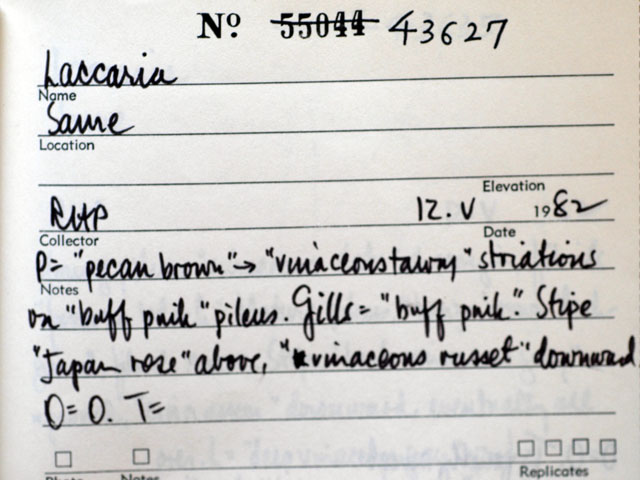 Nº 55044 43627
Laccaria
Name
Same
Location
Elevation
RHP 12.V 1982
Collector Date
P= "pecan brown"→ "vinaceoustawny" striations
Notes
on "buff pink" pileus. Gills = "buff pink". Stipe
"Japan rose" above, "vinaceous russet" downward
O= O. T=
Photo Notes Replicates